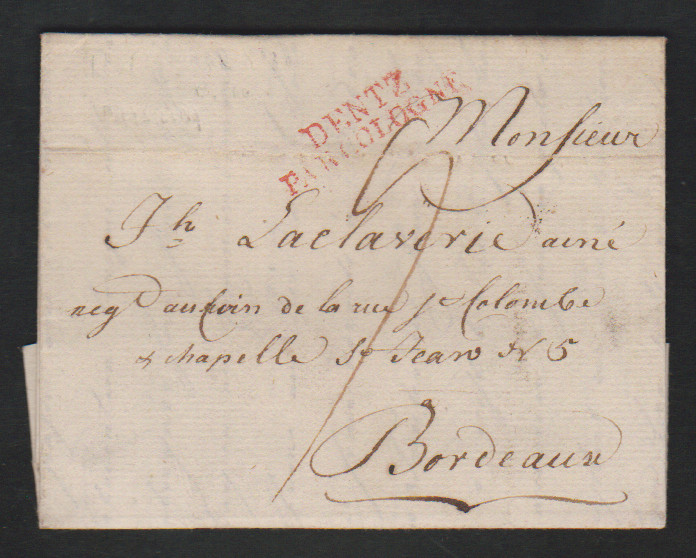 DENTZ
PAR COLOGNE
Monsieur
Jh Laclaverie ainé
negt au Coin de la rue Ste Colombe
& chapelle St Jean N 5
Bordeaux